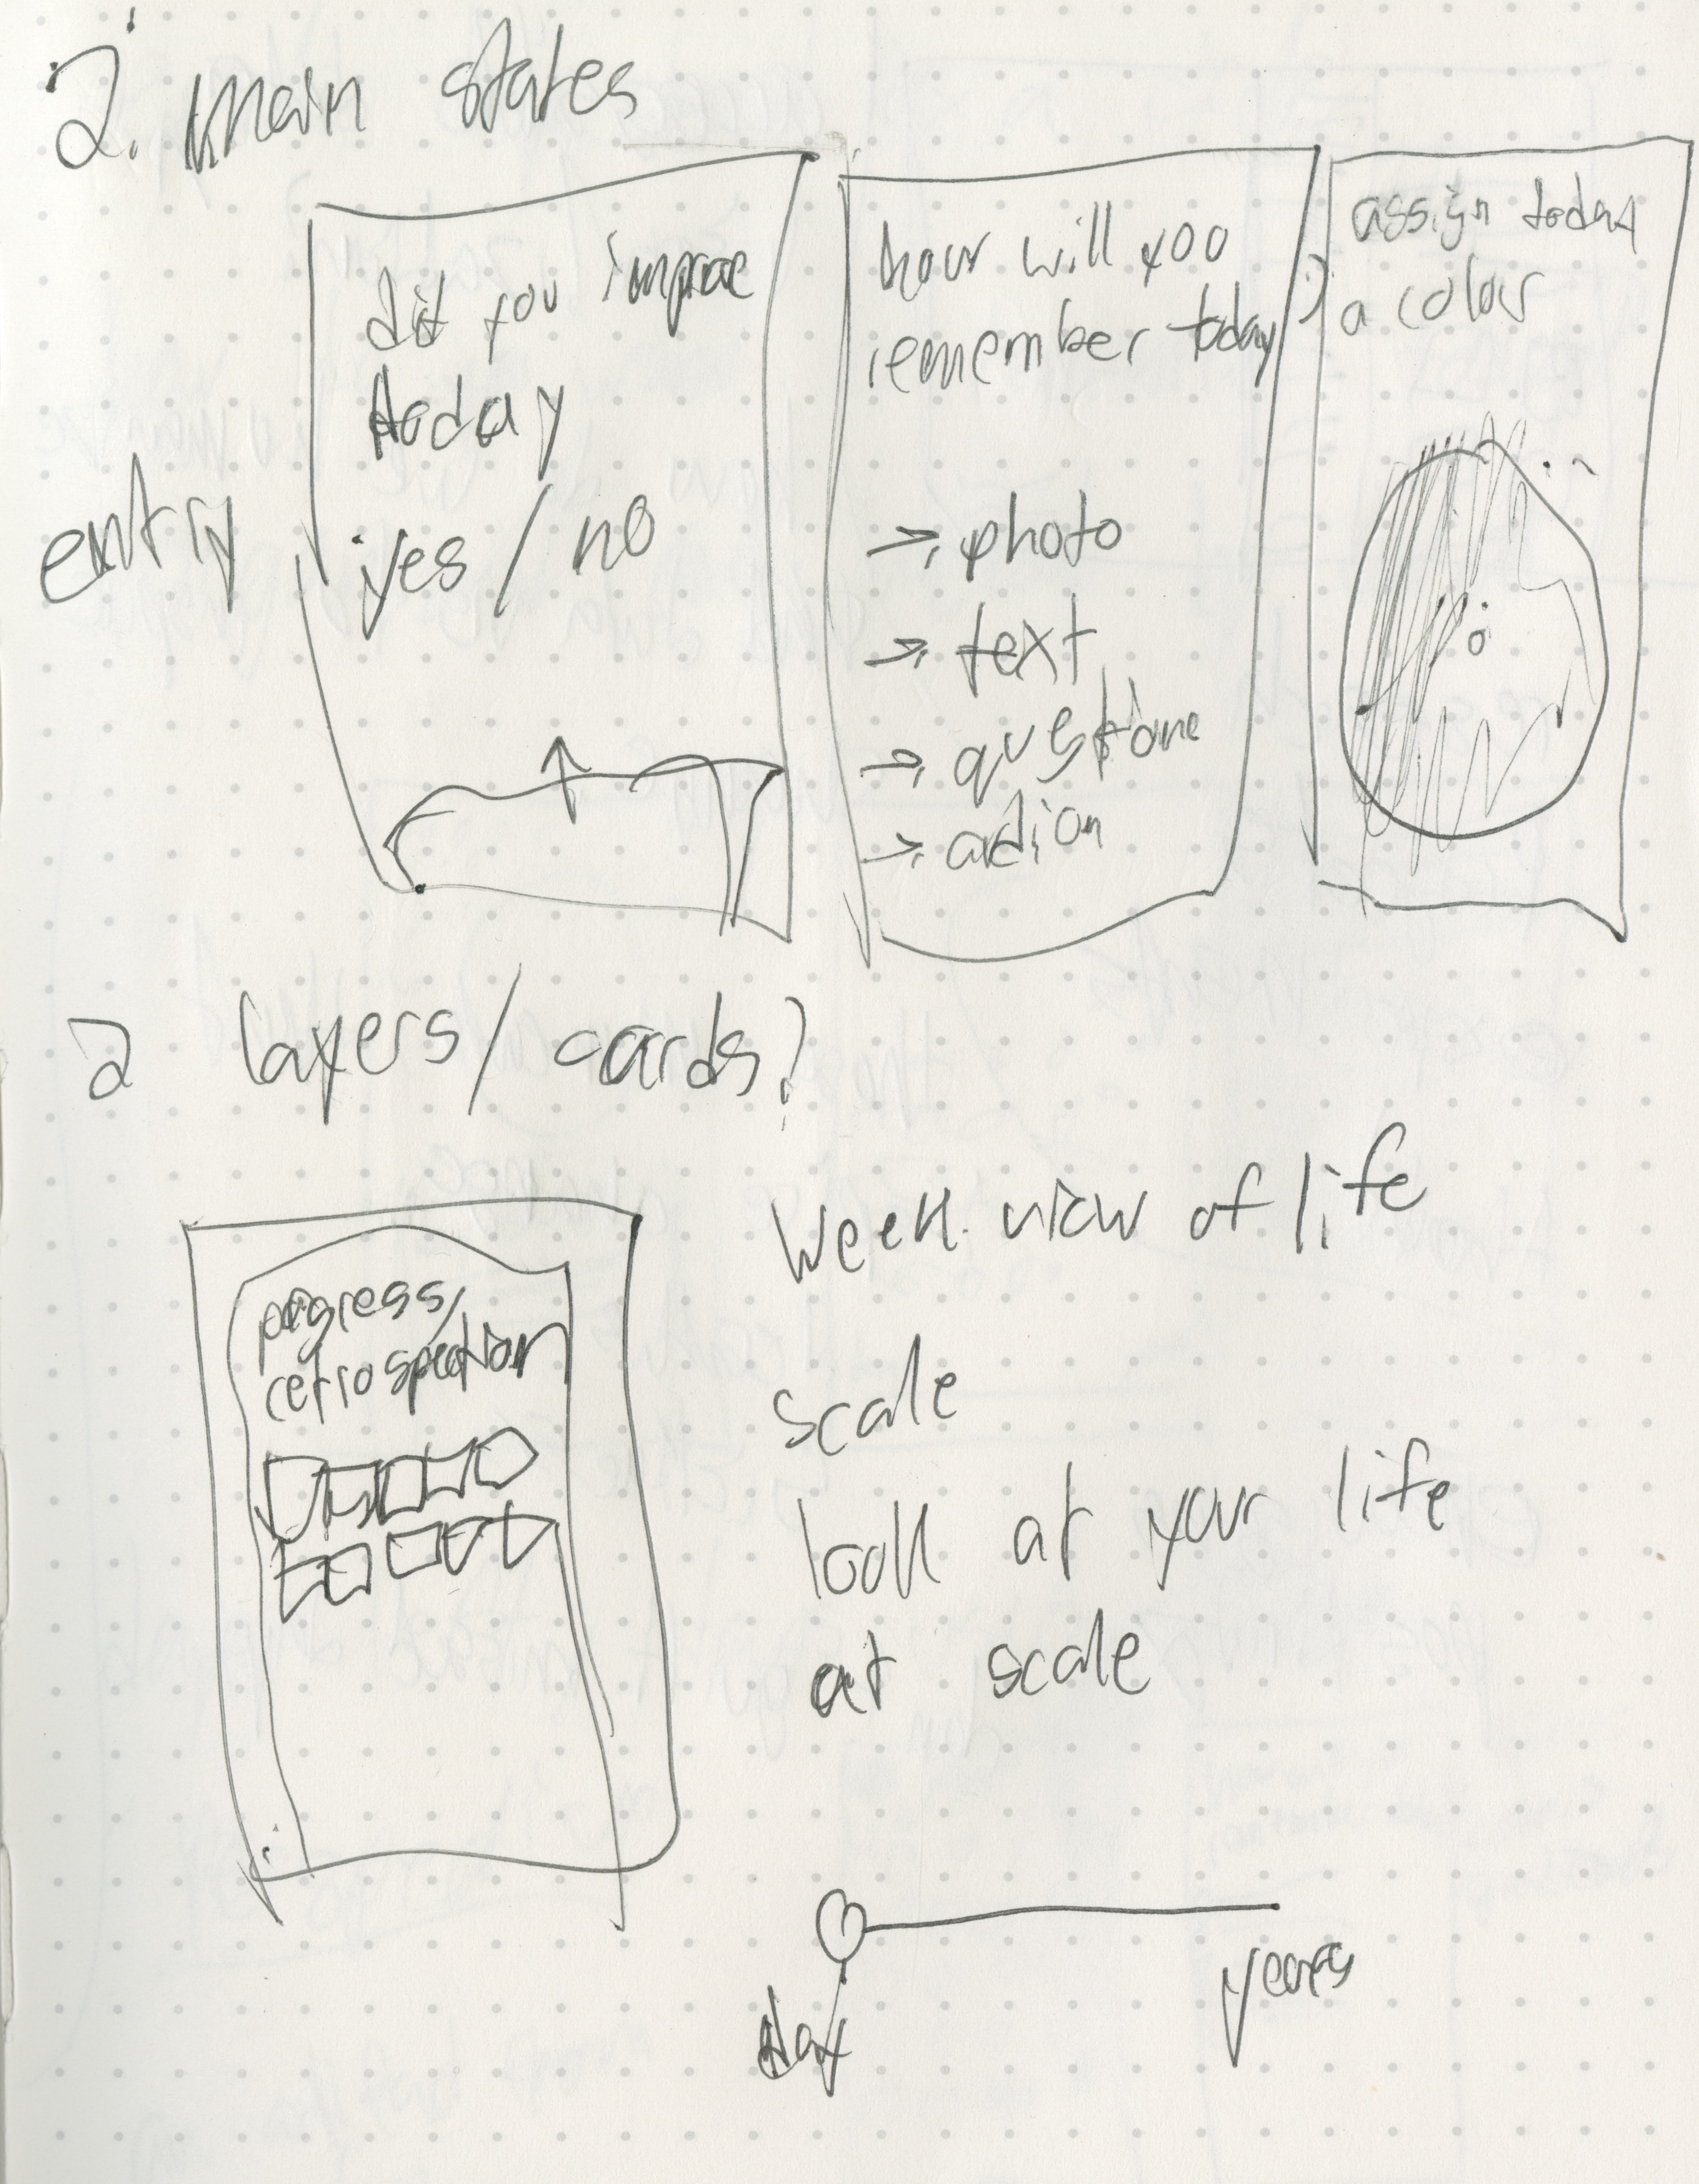 2. main states
entry
did you improve
today
yes / no
how will you
remember today?
→ photo
→ text
→ question
→ action
assign today
a color
2 layers/cards?
progress/
retrospection
Week view of life
scale
look at your life
at scale
day
years